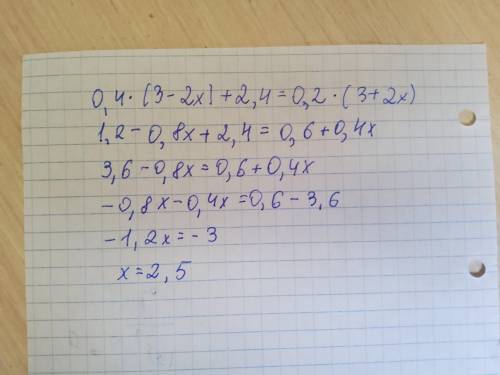 0,4·(3-2x)+2,4=0,2·(3+2x)
1,2-0,8x+2,4=0,6+0,4x
3,6-0,8x=0,6+0,4x
-0,8x-0,4x=0,6-3,6
-1,2x=-3
x=2,5